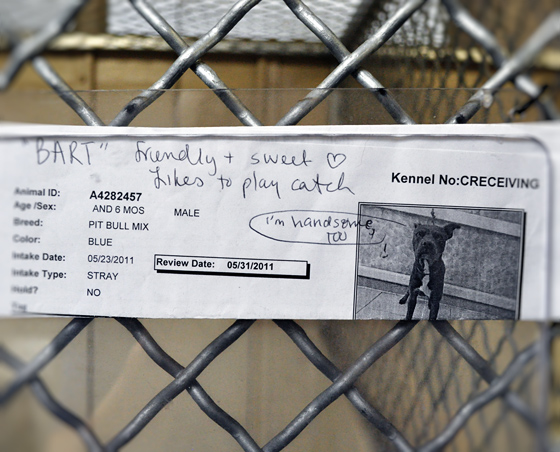 "BART" friendly + sweet ♡
Likes to play catch
Kennel No:CRECEIVING
Animal ID: A4282457
Age /Sex: AND 6 MOS MALE
I'm handsome
too!
Breed: PIT BULL MIX
Color: BLUE
Intake Date: 05/23/2011
Review Date: 05/31/2011
Intake Type: STRAY
Hold? NO